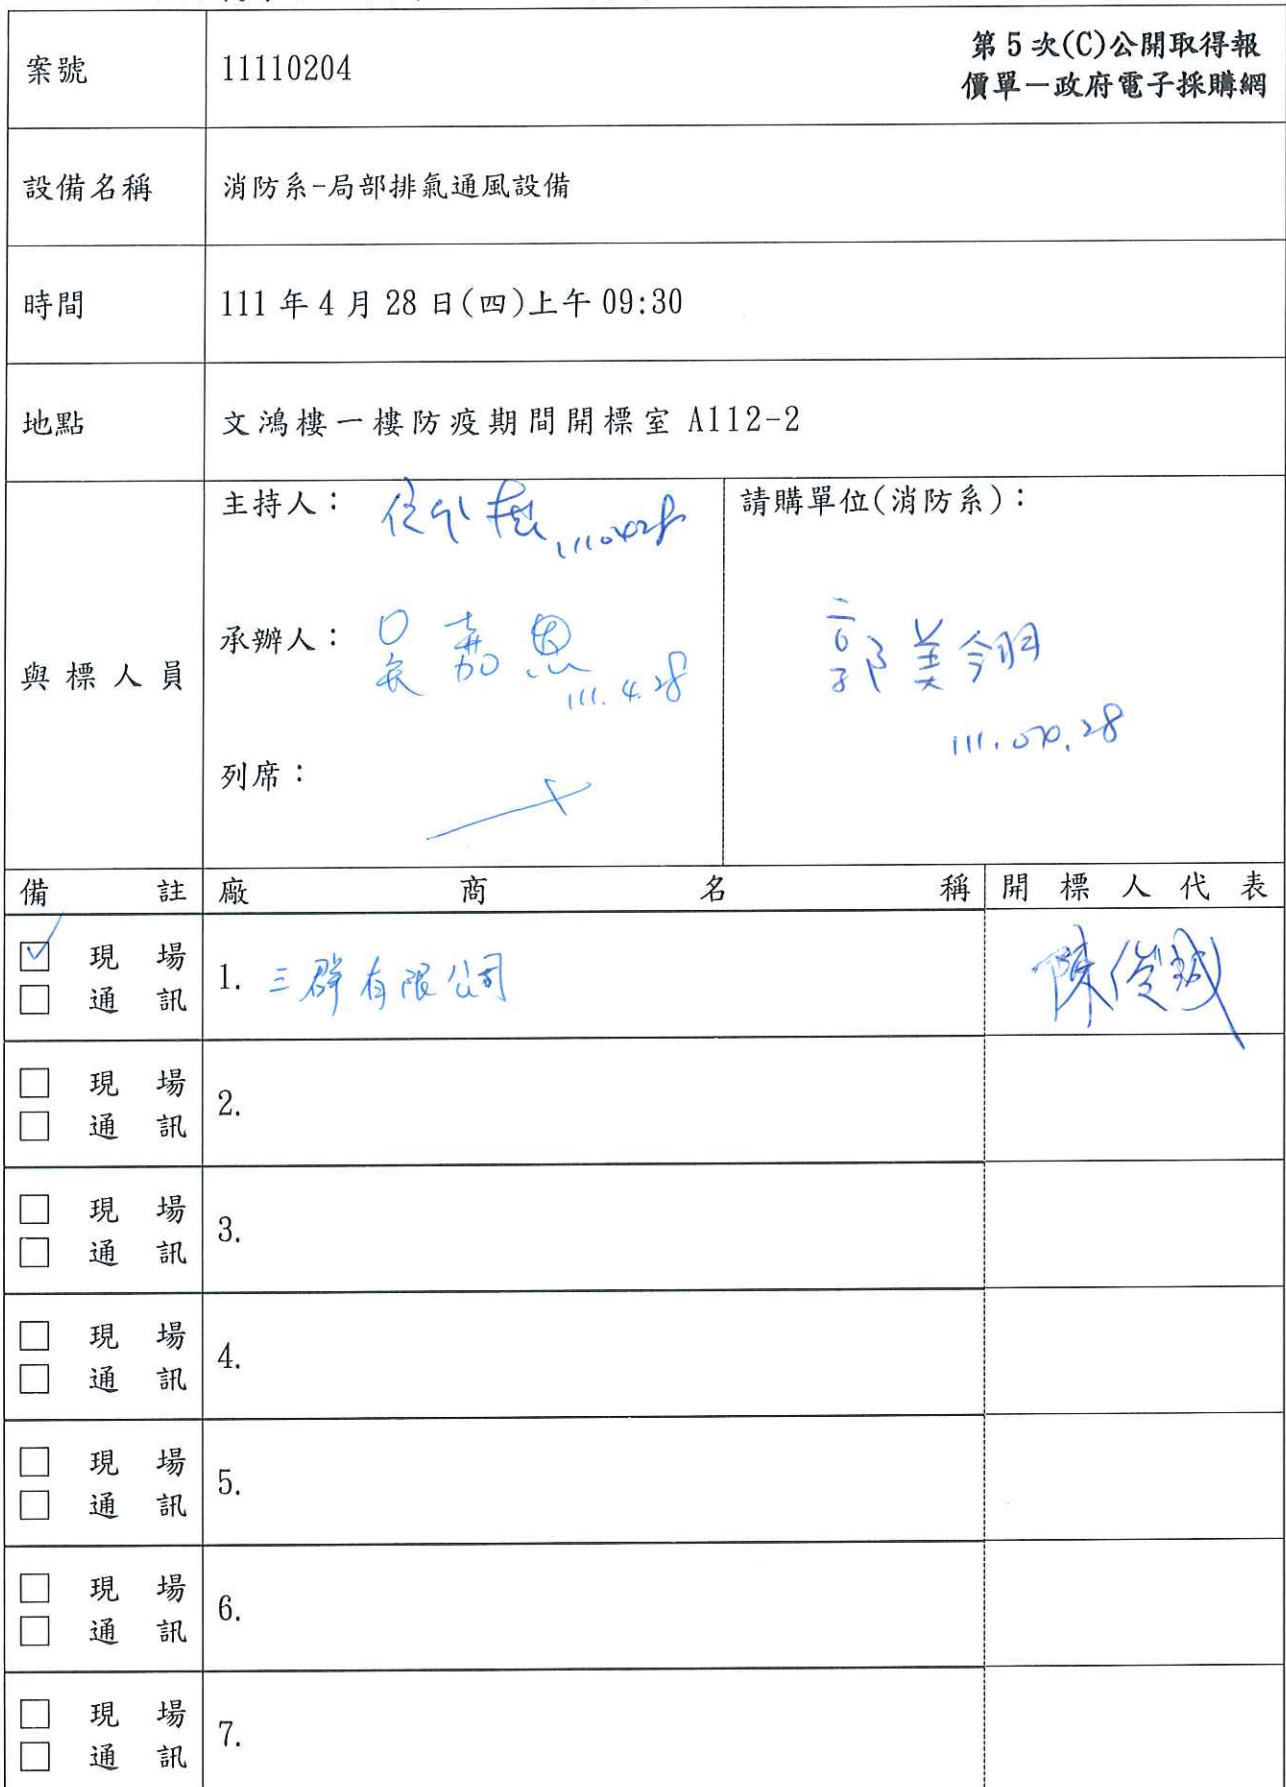 案號
11110204
第 5 次(C)公開取得報
價單－政府電子採購網
設備名稱
消防系-局部排氣通風設備
時間
111 年 4 月 28 日(四)上午 09:30
地點
文鴻樓一樓防疫期間開標室 A112-2
與標人員
主持人：
1110428
承辦人：吳嘉恩
111.4.28
列席：
請購單位(消防系)：
郭美翎
111.04.28
備註 廠商名稱 開標人代表
☑ 現場
□ 通訊
1. 三群有限公司
陳俊
□ 現場
□ 通訊
2.
□ 現場
□ 通訊
3.
□ 現場
□ 通訊
4.
□ 現場
□ 通訊
5.
□ 現場
□ 通訊
6.
□ 現場
□ 通訊
7.